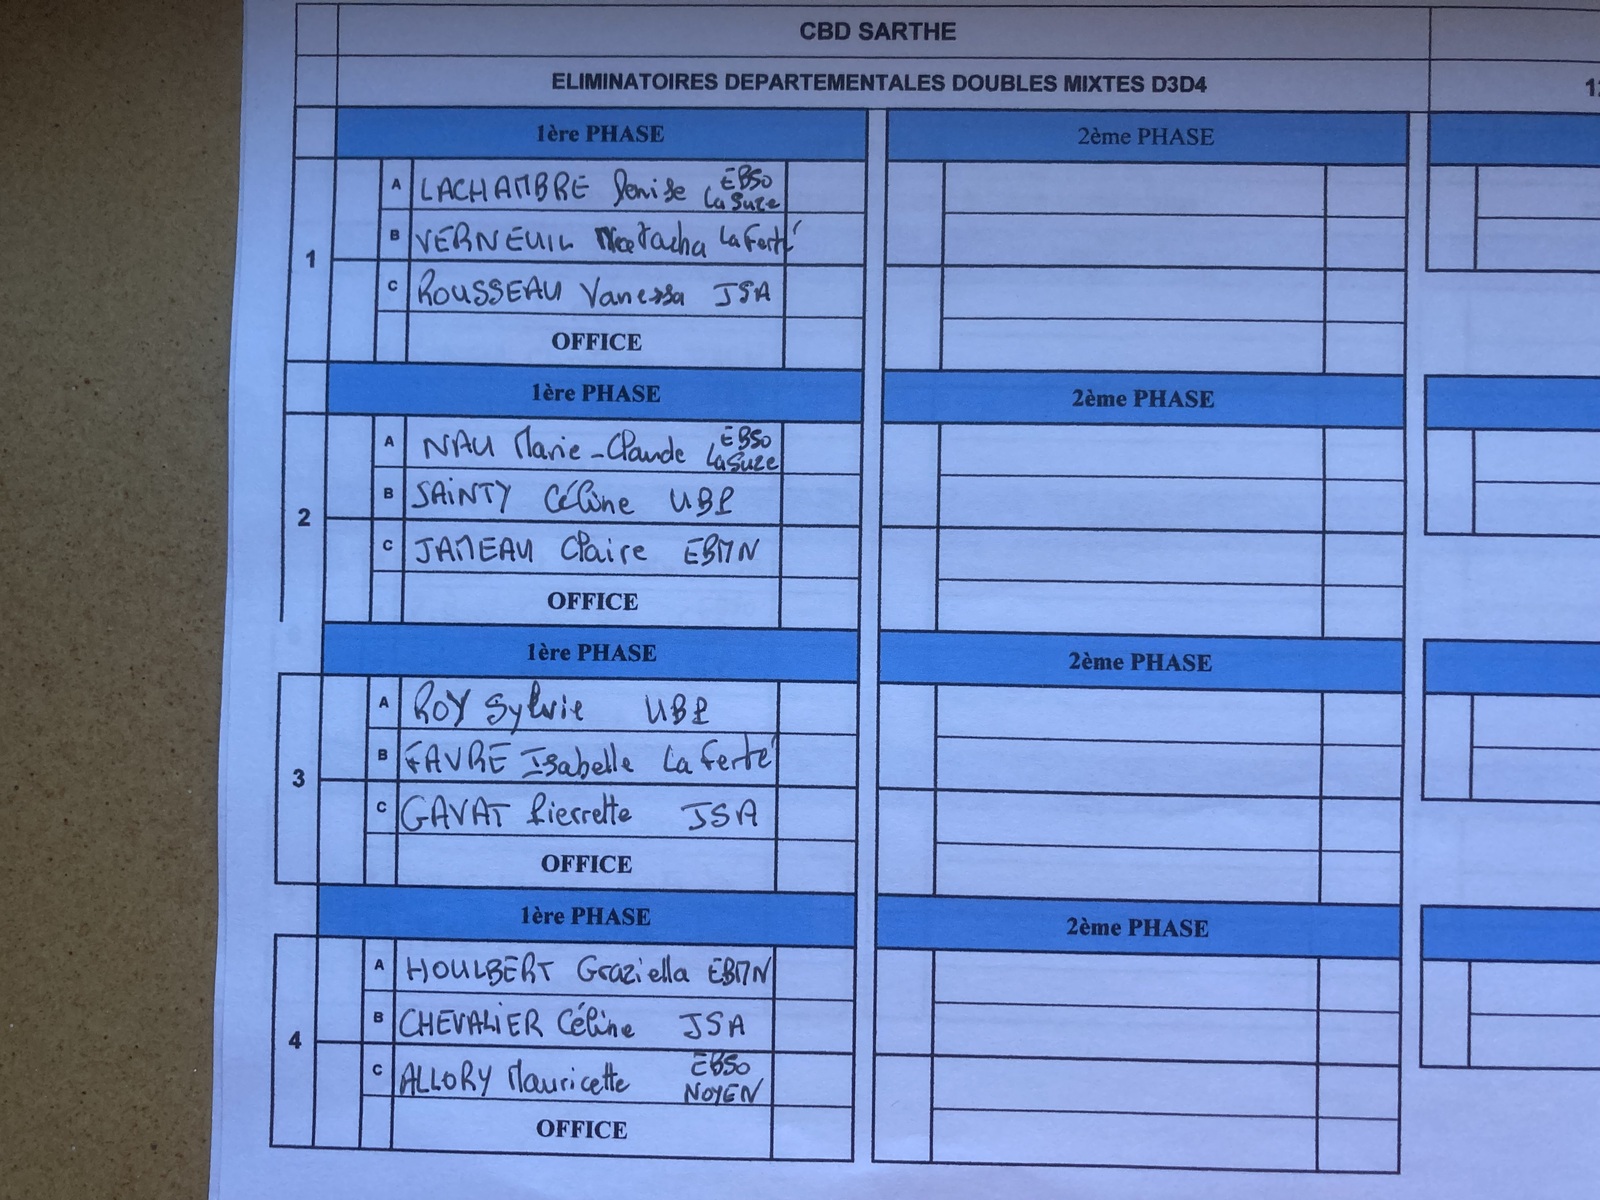 CBD SARTHE
ELIMINATOIRES DEPARTEMENTALES DOUBLES MIXTES D3D4
1ère PHASE 2ème PHASE
1
A LACHAMBRE Denise EBSO La Suze
B VERNEUIL Natacha La Ferté
C ROUSSEAU Vanessa JSA
OFFICE
1ère PHASE 2ème PHASE
2
A NAU Marie-Claude EBSO La Suze
B SAINTY Céline UBP
C JAMEAU Claire EBMN
OFFICE
1ère PHASE 2ème PHASE
3
A ROY Sylvie UBP
B FAVRE Isabelle La Ferté
C GAVAT Pierrette JSA
OFFICE
1ère PHASE 2ème PHASE
4
A HOULBERT Graziella EBMN
B CHEVALIER Céline JSA
C ALLORY Mauricette EBSO NOYEN
OFFICE